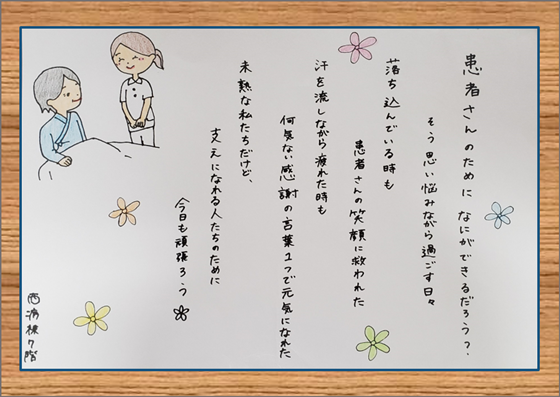 患者さんのために なにができるだろう?、
そう思い悩みながら過ごす日々
落ち込んでいる時も
患者さんの笑顔に救われた
汗を流しながら疲れた時も
何気ない感謝の言葉1つで元気になれた
未熟な私たちだけど、
支えになれる人たちのために
今日も頑張ろう
西病棟7階